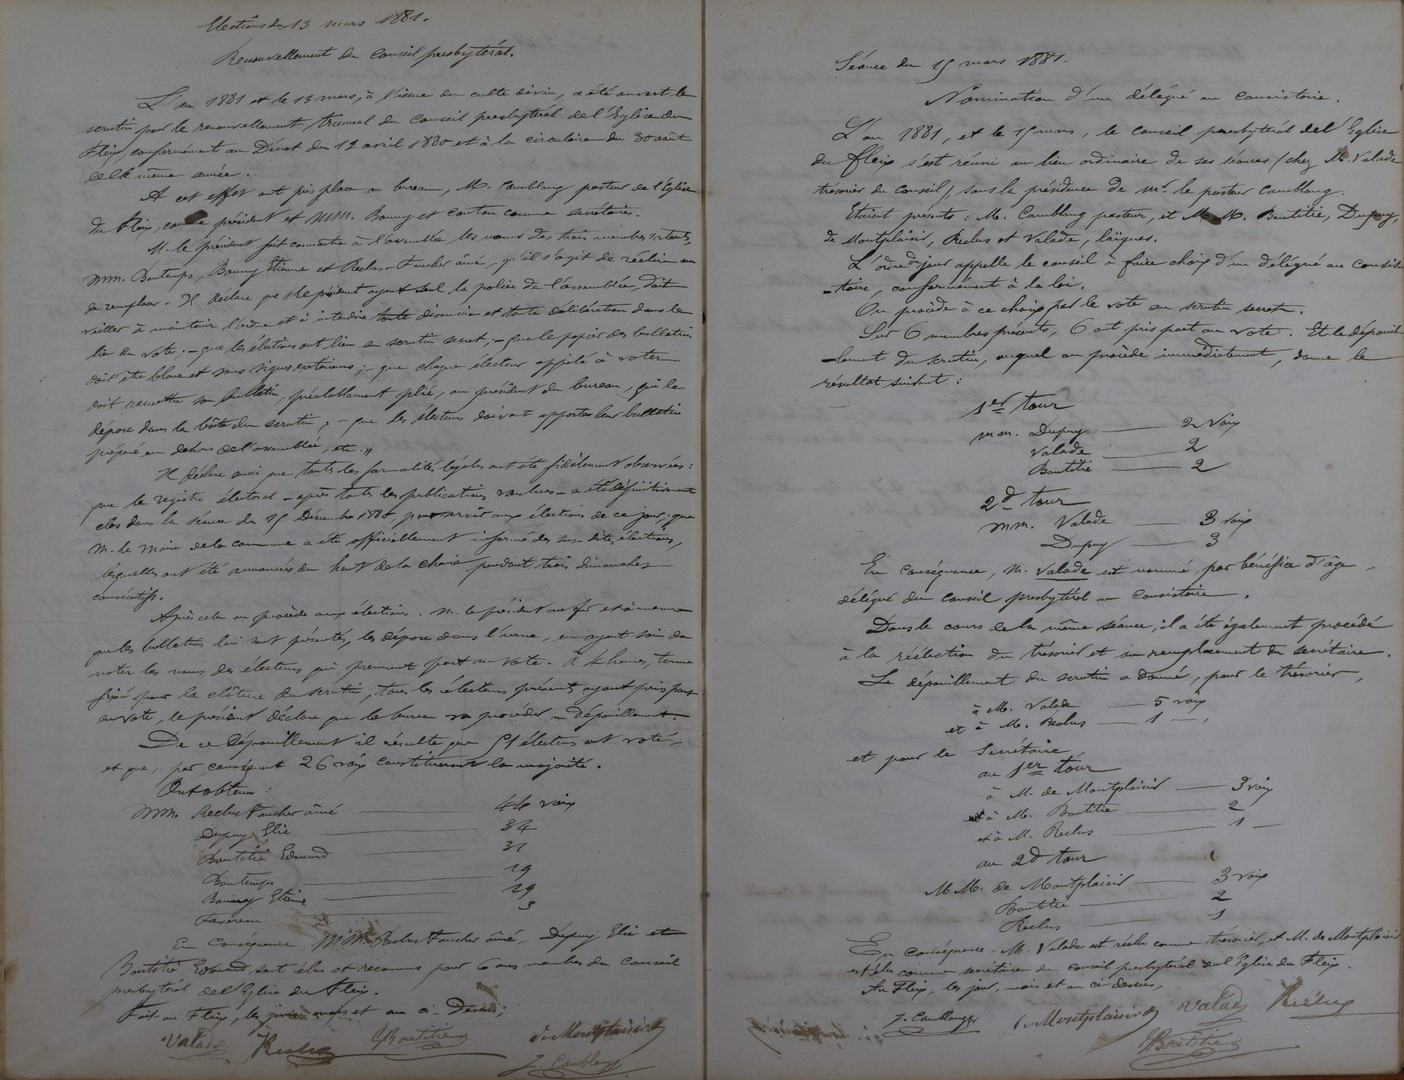 Elections du 13 mars 1881.
Renouvellement du Conseil presbytéral.
L'an 1881 et le 13 mars, à l'issue du culte divin, a été ouvert le
scrutin pour le renouvellement triennal du Conseil presbytéral de l'Eglise du
Fleix, conformément au Décret du 12 avril 1880 et à la circulaire du 30 août
de la même année.
A cet effet ont pris place au bureau, M. Cambloug pasteur de l'Eglise
du Fleix, comme président et MM. Bonny et comme secrétaires.
M. le président fait connaître à l'assemblée les noms des trois membres sortants,
MM. Bontemps, Bonny Etienne et Reclus-Faucher aîné, qu'il s'agit de réélire ou
de remplacer. Il déclare que le président ayant seul la police de l'assemblée, doit
veiller à maintenir l'ordre et à interdire toute discussion et toute délibération dans le
lieu du vote; - que les élections ont lieu au scrutin secret, - que le papier des bulletins
doit être blanc et sans signe extérieur; - que chaque électeur appelé à voter
doit remettre son bulletin, préalablement plié, au président du bureau, qui le
dépose dans la boîte du scrutin; - que les électeurs doivent apporter leur bulletin
préparé en dehors de l'assemblée, etc.
Il déclare aussi que toutes les formalités légales ont été fidèlement observées:
que le registre électoral - après toutes les publications voulues - a été définitivement
clos dans la séance du 15 Décembre 1880 pour servir aux élections de ce jour; que
M. le maire de la commune a été officiellement informé des sus-dites élections,
lesquelles ont été annoncées du haut de la chaire pendant trois dimanches
consécutifs.
Après cela on procède aux élections. M. le président au fur et à mesure
que les bulletins lui sont présentés, les dépose dans l'urne, en ayant soin de
noter les noms des électeurs qui prennent part au vote. A 4 heures, terme
fixé pour la clôture du scrutin, tous les électeurs présents ayant pris part
au vote, le président déclare que le bureau va procéder au dépouillement.
De ce dépouillement il résulte que 51 électeurs ont voté,
et que, par conséquent 26 voix constitueront la majorité.
Ont obtenu:
MM. Reclus Faucher aîné 44 voix
Dupuy Elie 34
Boutitié Edouard 31
Bontemps 19
Bonny Etienne 19
3
En Conséquence, MM. Reclus Faucher aîné, Dupuy Elie et
Boutitié Edouard, sont élus et reconnus pour 6 ans membres du Conseil
presbytéral de l'Eglise du Fleix.
Fait au Fleix, les jour, mois et an ci-Dessus;
Valade Reclus EBoutitié de Montplaisir
J. Cambloug
Séance du 15 mars 1881.
Nomination d'un délégué au consistoire.
L'an 1881, et le 15 mars, le conseil presbytéral de l'Eglise
du Fleix s'est réuni au lieu ordinaire de ses séances (chez M. Valade
trésorier du Conseil), sous la présidence de Mr le pasteur Cambloug.
Etaient présents: M. Cambloug pasteur, et M.M. Boutitié, Dupuy,
de Montplaisir, Reclus et Valade, laïques.
L'ordre du jour appelle le conseil à faire choix d'un délégué au consis-
-toire, conformément à la loi.
On procède à ce choix par le vote au scrutin secret.
Sur 6 membres présents, 6 ont pris part au vote. Et le dépouil-
-lement du scrutin, auquel on procède immédiatement, donne le
résultat suivant:
1er tour
MM. Dupuy 2 voix
Valade 2
Boutitié 2
2d tour
MM. Valade 3 voix
Dupuy 3
En conséquence, M. Valade est nommé par bénéfice d'âge,
délégué du conseil presbytéral au Consistoire.
Dans le cours de la même séance, il a été également procédé
à la réélection du trésorier et au remplacement du secrétaire.
Le dépouillement du scrutin a donné, pour le trésorier,
à M. Valade 5 voix
et à M. Reclus 1 -,
et pour le Secrétaire,
au 1er tour
à M. de Montplaisir 3 voix
et à M. Boutitié 2
et à M. Reclus 1 -
au 2d tour
M.M. de Montplaisir 3 voix
Boutitié 2
Reclus 1
En conséquence. M. Valade est réélu comme trésorier, et M. de Montplaisir
est élu comme secrétaire du conseil presbytéral de l'Eglise du Fleix.
Au Fleix, les jour, mois et an ci-dessus,
J. Cambloug de Montplaisir Valade Reclus
EBoutitié